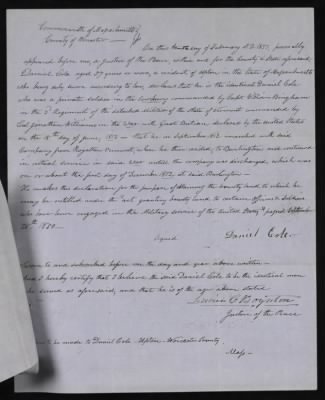 Commonwealth of Massachusetts
County of Worcester
On this tenth day of February A.D. 1851, personally
appeared before me, a Justice of the Peace, within and for the County & State aforesaid
Daniel Cole, aged 57 years or more, a resident of Upton in the State of Massachusetts
who being duly sworn according to law, declares that he is the identical Daniel Cole
who was a private soldier in the Company commanded by Capt
in the 3rd Regiment of the detached militia of the State of Vermont commanded by
Col. Jonathan Williams in the War with Great Britain declared by the United States
on the 18th day of June, 1812 – that he in September 1812 marched with said
Company from Vermont, when he then resided, to Burlington, and continued
in actual service in said War until the company was discharged, which was
on or about the first day of December 1812, at said Burlington –
He makes this declaration for the purpose of obtaining the bounty land to which he
may be entitled under the "act granting bounty land to certain Officers & Soldiers
who have been engaged in the Military service of the United States" passed September
28th 1850 –
Signed Daniel Cole
Sworn to and subscribed before me the day and year above written –
And I hereby certify that I believe the said Daniel Cole to be the identical man
who served as aforesaid, and that he is of the age above stated
Boynton
Justice of the Peace
to be made to Daniel Cole – Upton – Worcester County
Mass –